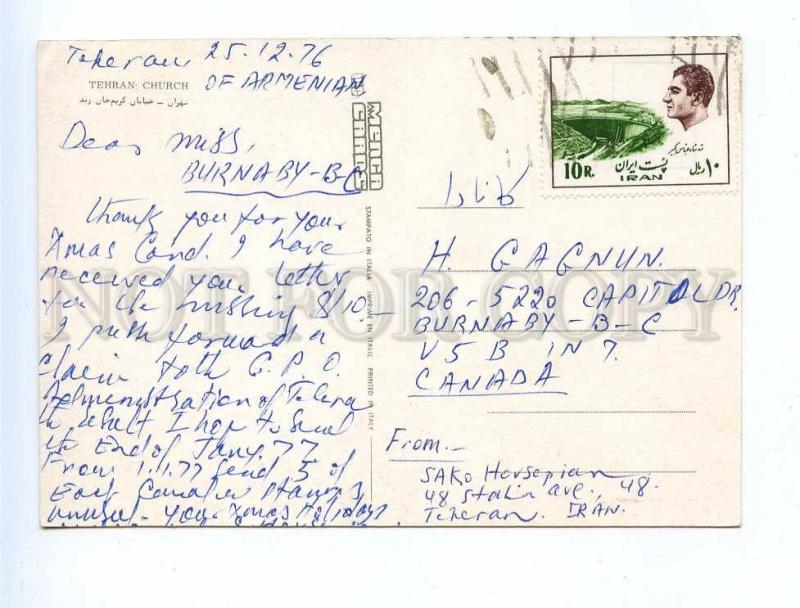 Teheran 25.12.76
TEHRAN: CHURCH OF ARMENIAN
تهران - خیابان کریم‌خان زند
Dear Miss,
BURNABY-B-C
thank you for your
Xmas Card. I have
received your letter
for the missing $/10.-
I put forward a
claim to th G.P.O.
Administration of Tehera
result I hope to send
End of Jan 4.77
From 1.1.77 send 5 of
Each Canada Stamps
unused - your Xmas Holidays
MENCH CHROS
STAMPATO IN ITALIA IMPRIME EN ITALIE PRINTED IN ITALY
پست ایران
10R. IRAN ۱۰ ریال
کانادا
H. GAGNUN.
206-5220 CAPITOL DR.
BURNABY-B-C
V5B 1N7.
CANADA
From.-
SAKO Hovsepian
48 Stalin ave., 48.
Teheran. IRAN.
NOT FOR COPY